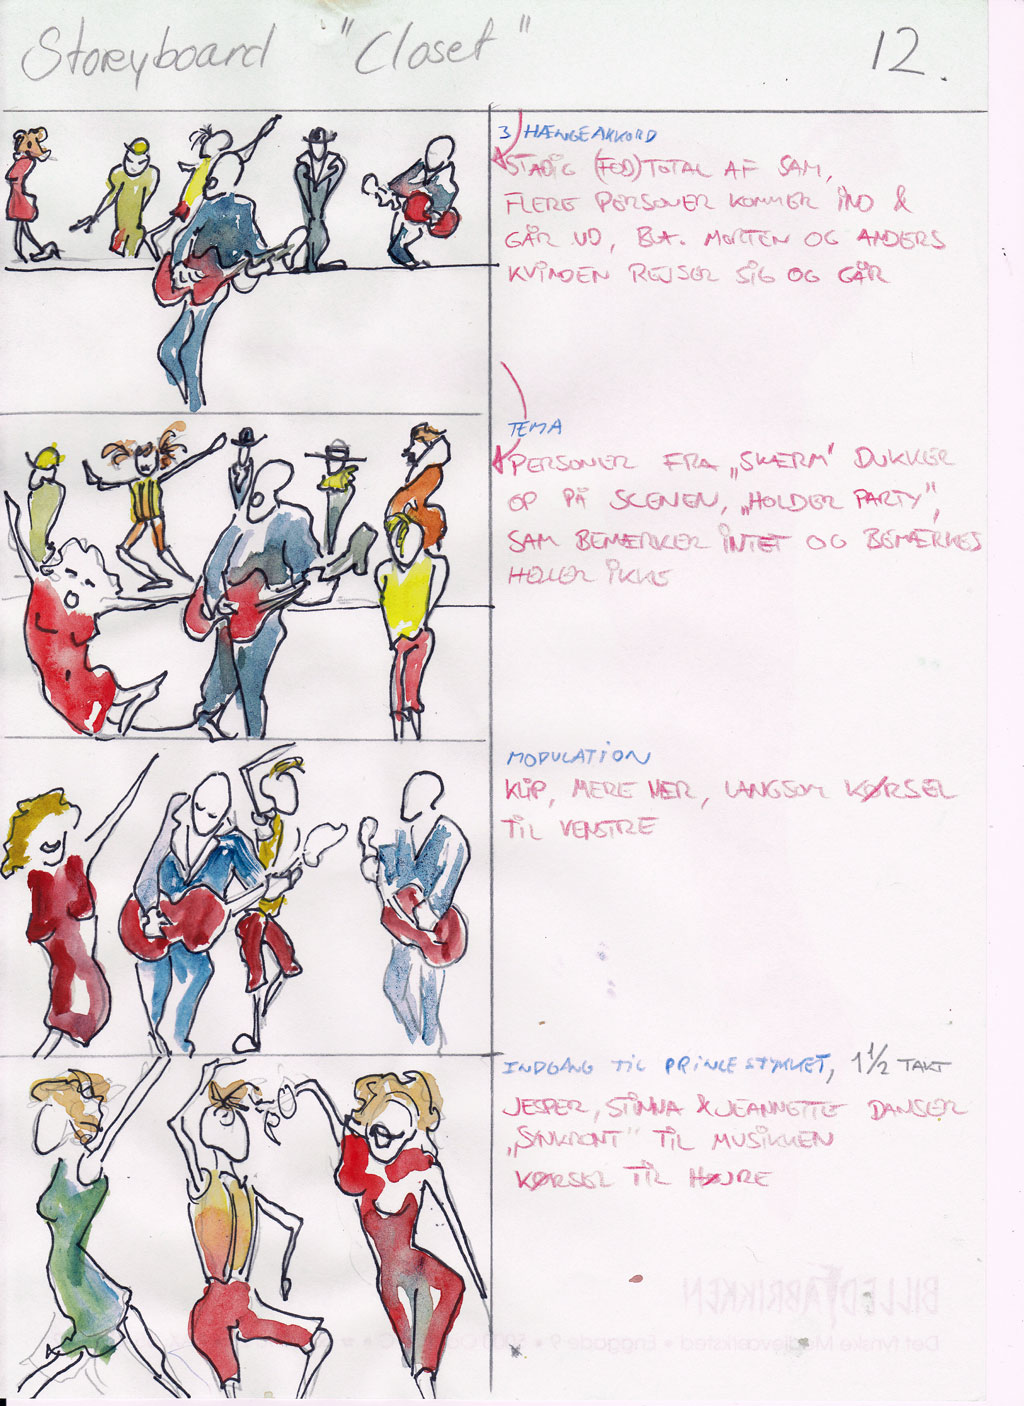 Storyboard "Closet" 12.
3 HÆNGEAKKORD
STADIG (FOD) TOTAL AF SAM,
FLERE PERSONER KOMMER IND &
GÅR UD, BL.A. MORTEN OG ANDERS
KVINDEN REJSER SIG OG GÅR
TEMA
PERSONER FRA „SKÆRM" DUKKER
OP PÅ SCENEN, „HOLDER PARTY",
SAM BEMÆRKER INTET OG BEMÆRKES
HELLER IKKE
MODULATION
KLIP, MERE NÆR, LANGSOM KØRSEL
TIL VENSTRE
INDGANG TIL PRINCESTYKKET, 1 1/2 TAKT
JESPER, STINNA & JEANNETTE DANSER
„SYNKRONT" TIL MUSIKKEN
KØRSEL TIL HØJRE
BILLEDFABRIKKEN
Det fynske Medieværksted • Enggade 9 • 5000